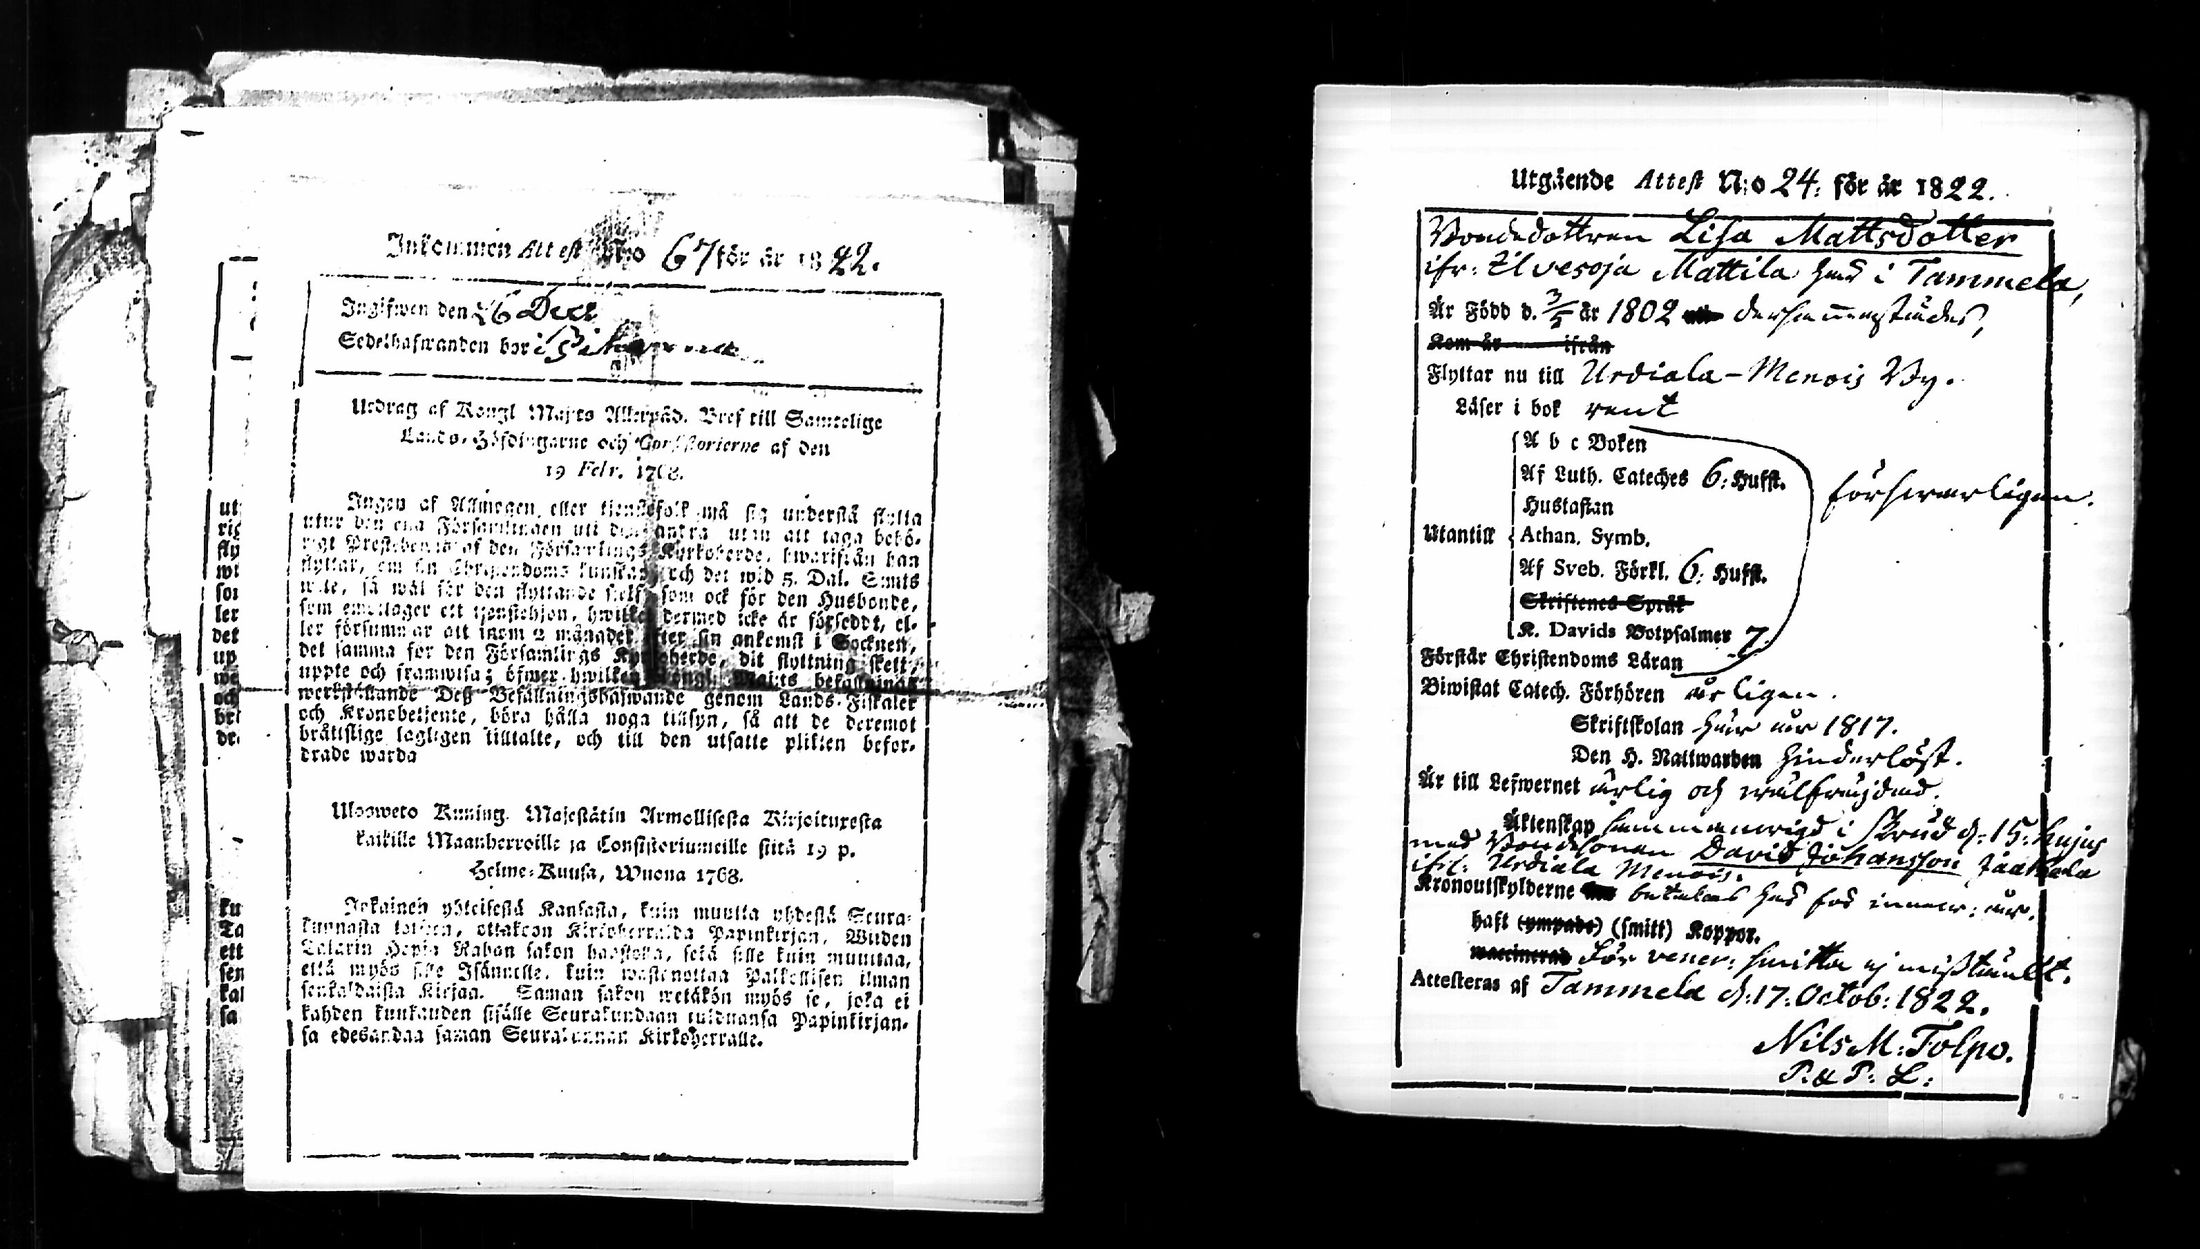 Inkommen Attest N:o 67 för år 1822.
Ingifwen den 26 Decr
Sedelhafwanden bor i
Utdrag af Kongl Maj:ts Allernåd. Bref till Samtelige
Lands-Höfdingarne och Consistorierne af den
19 Febr. 1768.
Ingen af Allmogen eller tjenstefolk må sig understå flytta
utur den ena Församlingen uti den andra utan att taga behö-
rigt Prestebewis af den Församlings Kyrkoherde, hwarifrån han
flyttar, om sin Christendoms kunskap och det wid 5. Dal. S:mts
wite, så wäl för den flyttande sielf som ock för den Husbonde,
som emottager ett tjenstehjon, hwilket dermed icke är försedt, el-
ler försummar att inom 2 månader efter sin ankomst i Socknen,
det samma för den Församlings Kyrkoherde, dit flyttning skett,
uppte och framwisa; öfwer hwilken Kongl. Maj:ts befallning
werkställande Deß Befallningshafwande genom Lands-Fiskaler
och Kronobetjente, böra hålla noga tillsyn, så att de deremot
bråtislige lagligen tilltalte, och till den utsatte plikten befor-
drade warda
Ulosweto Kuning. Majestätin Armollisesta Kirjoituxesta
kaikille Maanherroille ja Consistoriumeille siitä 19 p.
Helme-Kuusa, Wuona 1768.
Jokainen yhteisestä Kansasta, kuin muutta yhdestä Seura-
kunnasta toiseen, ottakoon Kirkoherralda Papinkirjan, Wiiden
Talarin Hopia Rahan sakon haastolla, sekä sille kuin muuttaa,
että myös sille Isännelle, kuin wastanottaa Palkollisen ilman
senkaldaista Kirjaa. Saman sakon wetäkön myös se, joka ei
kahden kuukauden sisälle Seurakundaan tulduansa Papinkirjan-
sa edesandaa saman Seurakunnan Kirkoherralle.
Utgäende Attest N:o 24: för år 1822.
Bondedottren Lisa Mattsdotter
ifr: Ilvesoja Mattila hd i Tammela,
Är Född d. 3/5 år 1802 dersammenstädes,
Kom år ifrån
Flyttar nu till Urdiala-Menois By.
Läser i bok rent
A b c Boken
Af Luth. Cateches 6: Hufst.
försvarligen.
Hustaflan
Utantill Athan. Symb.
Af Sveb. Förkl. 6: Hufst.
Skriftenes Språk
K. Davids Botpsalmer 7.
Förstår Christendoms Läran
Biwistat Catech. Förhören årligen.
Skriftskolan här år 1817.
Den H. Nattwarden hinderlöst.
Är till Lefwernet ärlig och wälfräjdad.
Äktenskap sammanvigd i Brud d: 15: hujus
med Bondesonen David Johansson Jaakkola
ifr: Urdiala Menois.
Kronoutskylderne betalas här för innew: år.
haft (ympade) (smitt) Koppor.
waccinerad För vener: smitta ej mißtänkt.
Attesteras af Tammela d: 17: Octob: 1822.
Nils M: Tolpo.
P: & P: L: